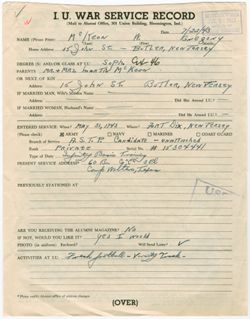 I. U. WAR SERVICE RECORD
(Mail to Alumni Office, 301 Union Building, Bloomington, Ind.)
Date 7/22/43
NAME (Please Print) McKeon W. Gregory
Home Address 15 John St. - Butler, New Jersey
DEGREE(S) and/or CLASS at I.U. Soph. Oct 46
PARENTS Mr & Mrs McKeon
OR NEXT OF KIN
Address 15 John St. Butler, New Jersey
IF MARRIED MAN, Wife's Maiden Name
Address Did She Attend I.U.?
IF MARRIED WOMAN, Husband's Name
Address Did He Attend I.U.?
ENTERED SERVICE When? May 31, 1943 Where? Fort Dix, New Jersey
(Please check) ARMY NAVY MARINES COAST GUARD
Branch of Service A.S.T.P. Candidate - unattached
Rank Private Serial No.
Type of Duty Infantry Basic Training
PRESENT SERVICE ADDRESS
Camp Wolters, Texas
PREVIOUSLY STATIONED AT
USE
ARE YOU RECEIVING THE ALUMNI MAGAZINE? No
IF NOT, WOULD YOU LIKE IT? Yes I would
PHOTO (in uniform): Enclosed? Will Send Later? ✓
ACTIVITIES AT I.U. Fresh football - Varsity Track
(OVER)